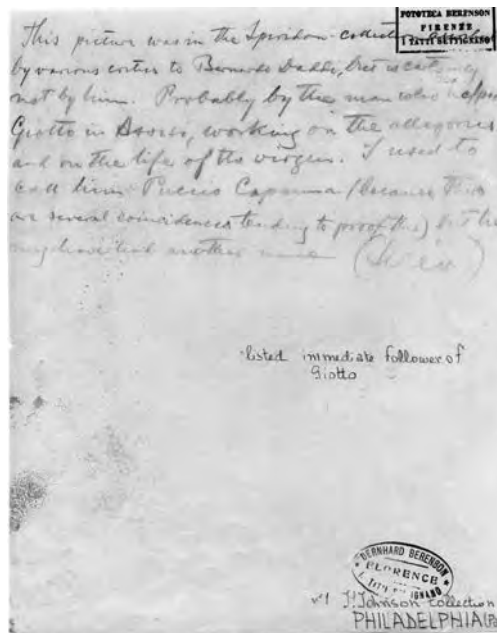 FOTOTECA BERENSON
FIRENZE
I TATTI SETTIGNANO
This picture was in the Spiridon collection
by various critics to Bernardo Daddi, but is certainly
not by him. Probably by the man who helped
Giotto in Assisi, working on the allegories
and on the life of the virgin. I used to
call him Puccio Capanna (because there
are several coincidences tending to proof this) but he
may have had another name
listed immediate follower of
Giotto
BERNHARD BERENSON
FLORENCE
I TATTI
J. Johnson Collection
PHILADELPHIA